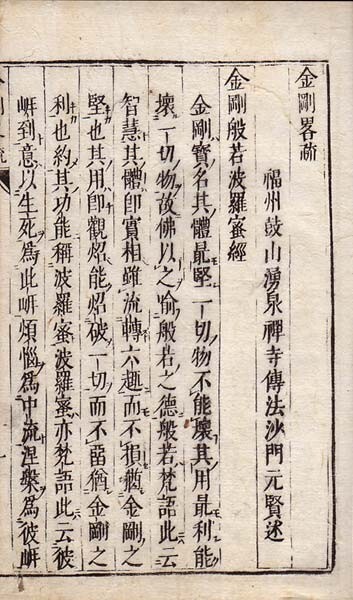 金剛畧疏
福州鼓山湧泉禪寺傳法沙門元賢述
金剛般若波羅蜜經
金剛寶名其體最堅一切物不能壞其用最利能
壞一切物故佛以之喻般若之德般若梵語此云
智慧其體卽實相雖流轉六趣而不損猶金剛之
堅也其用卽觀炤能炤破一切而不畱猶金剛之
利也約其功能稱波羅蜜波羅蜜亦梵語此云彼
岍到意以生死爲此岍煩惱爲中流涅槃爲彼岍